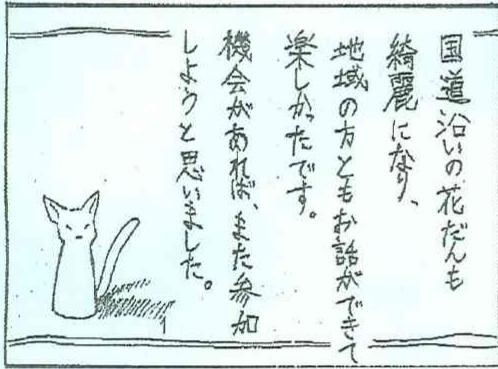 国道沿いの花だんも
綺麗になり、
地域の方ともお話ができて
楽しかったです。
機会があれば、また参加
しようと思いました。